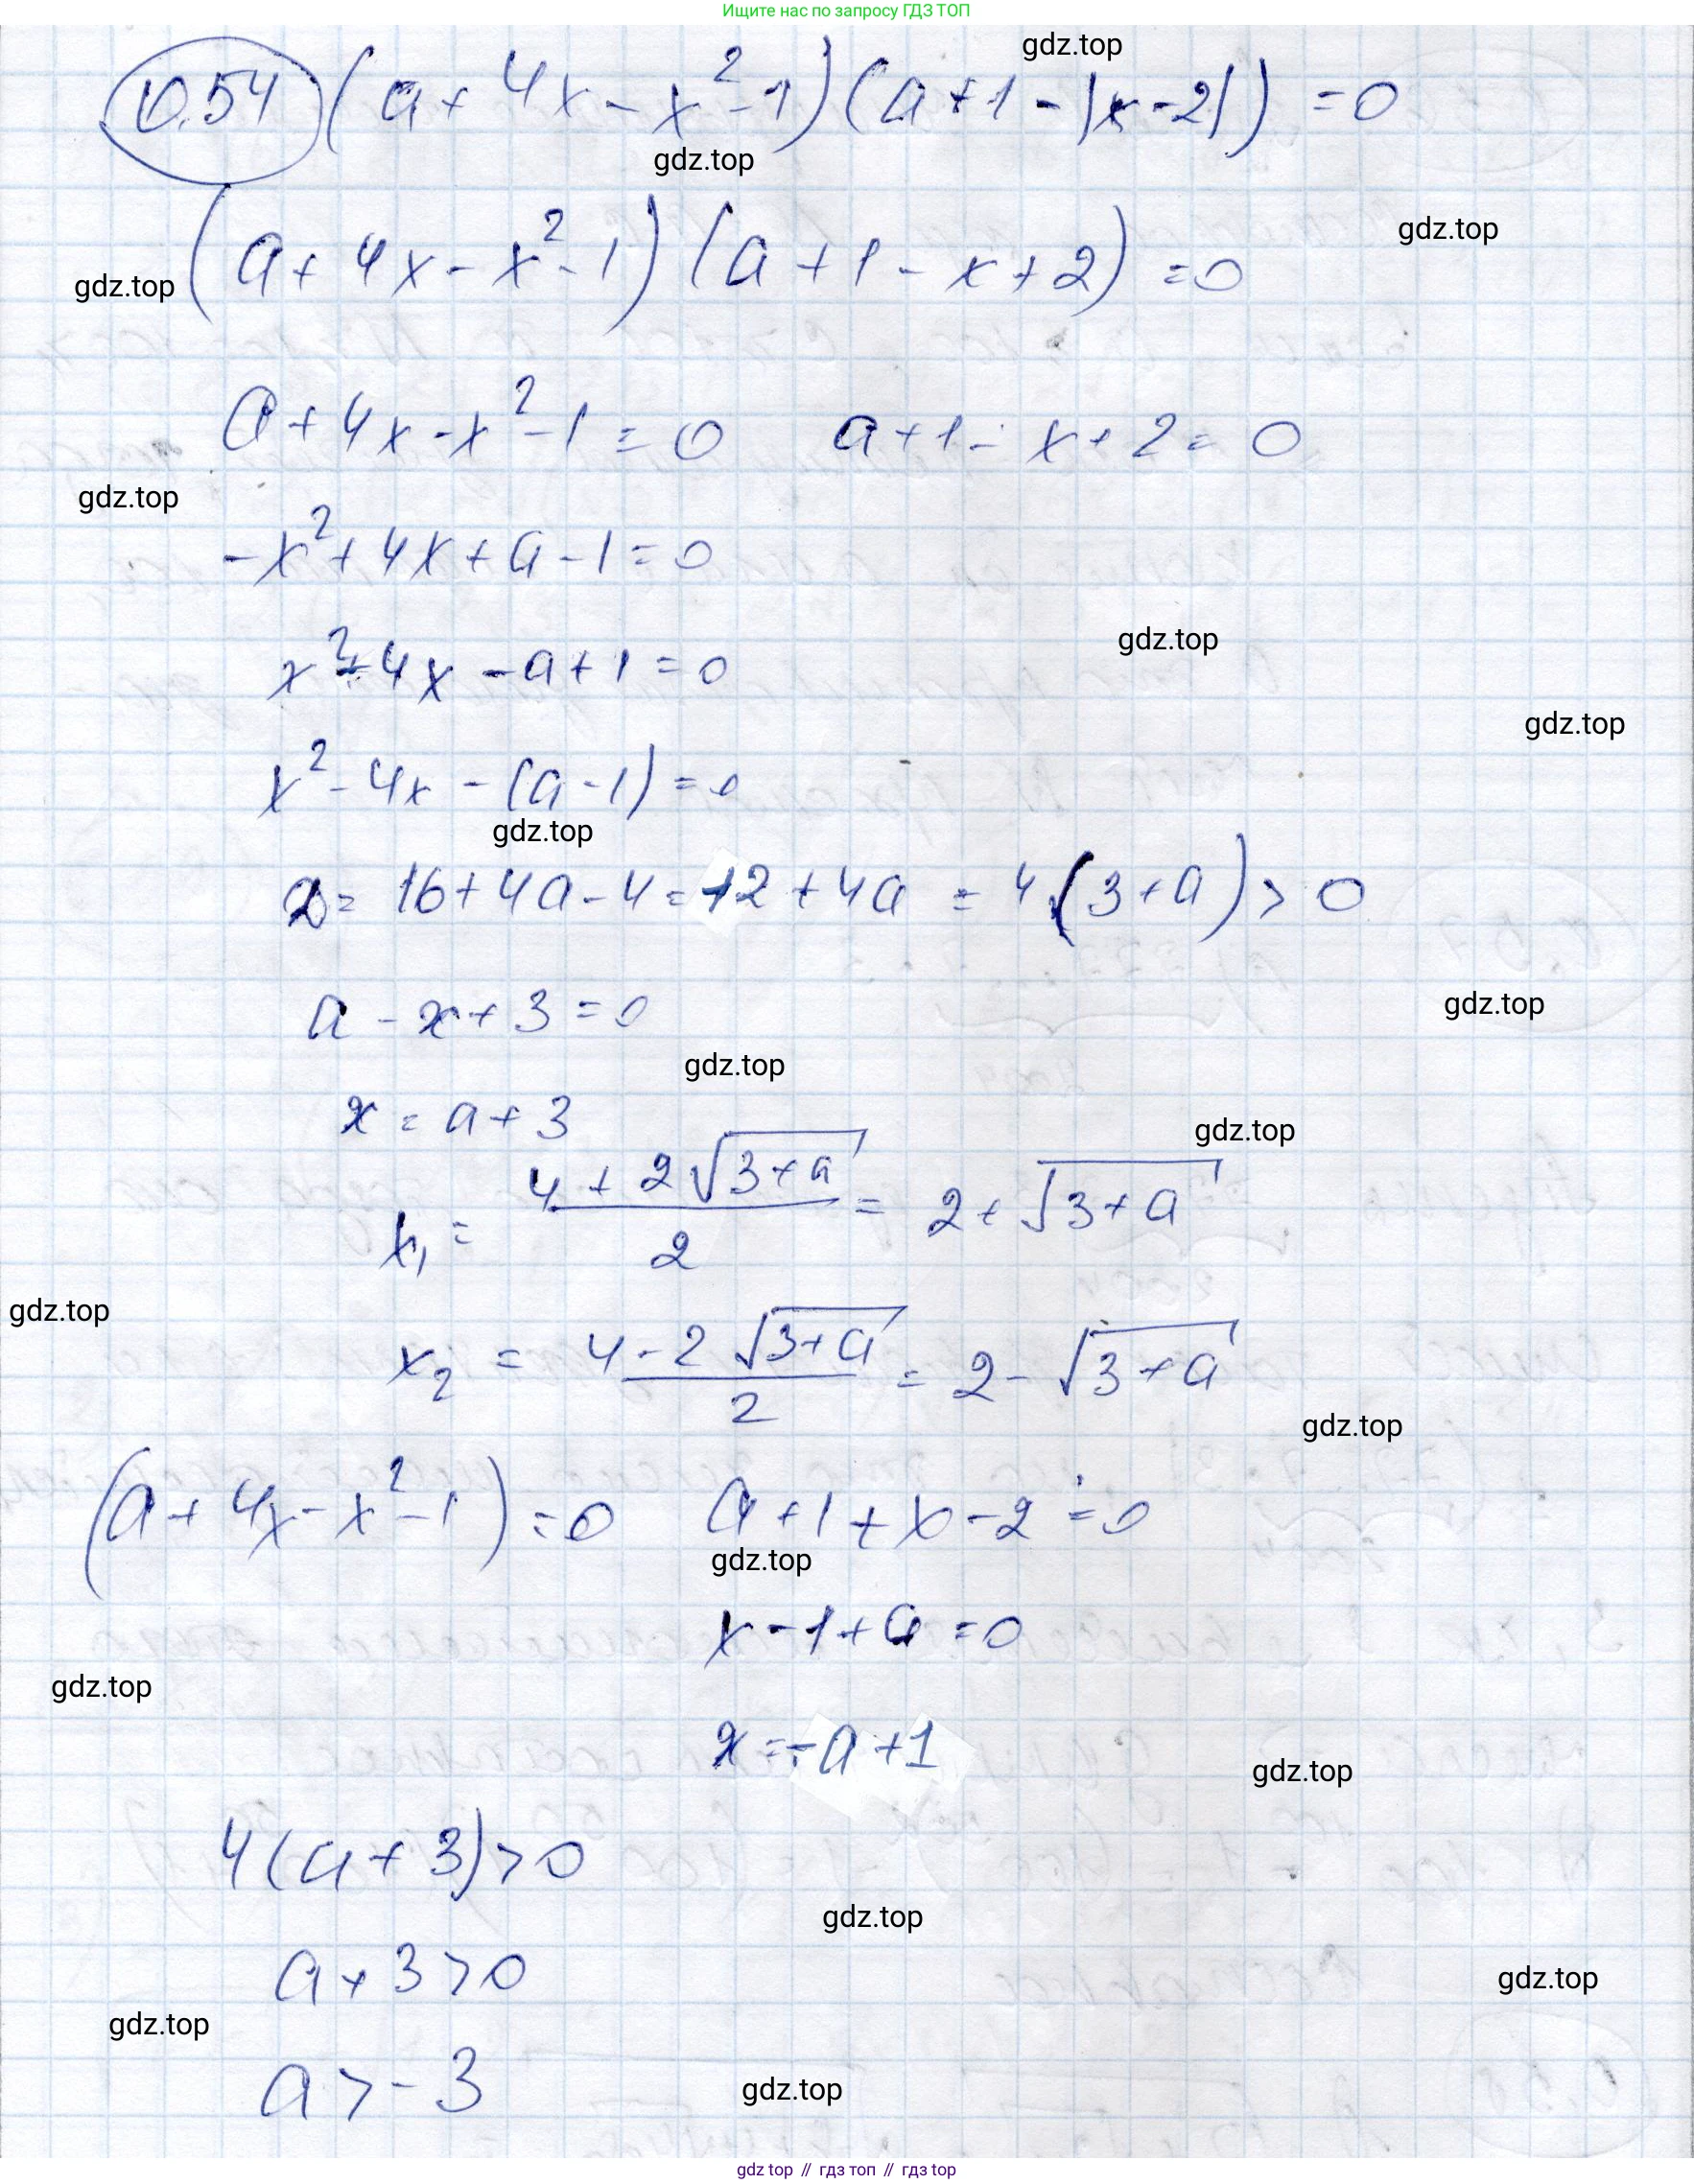 Ищите нас по запросу ГДЗ ТОП
gdz.top
10.54 (a + 4x - x² - 1)(a + 1 - |x - 2|) = 0
gdz.top
gdz.top
(a + 4x - x² - 1)(a + 1 - x + 2) = 0
gdz.top
a + 4x - x² - 1 = 0 a + 1 - x + 2 = 0
gdz.top
-x² + 4x + a - 1 = 0
gdz.top
x² - 4x - a + 1 = 0
gdz.top
x² - 4x - (a - 1) = 0
gdz.top
D = 16 + 4a - 4 = 12 + 4a = 4(3 + a) > 0
gdz.top
a - x + 3 = 0
gdz.top
x = a + 3
gdz.top
x₁ = (4 + 2√(3 + a))/2 = 2 + √(3 + a)
gdz.top
x₂ = (4 - 2√(3 + a))/2 = 2 - √(3 + a)
gdz.top
(a + 4x - x² - 1) = 0 a + 1 + x - 2 = 0
gdz.top
x - 1 + a = 0
gdz.top
x = -a + 1
gdz.top
4(a + 3) > 0
gdz.top
a + 3 > 0
gdz.top
gdz.top
a > -3
gdz.top
gdz top // гдз топ // гдз top